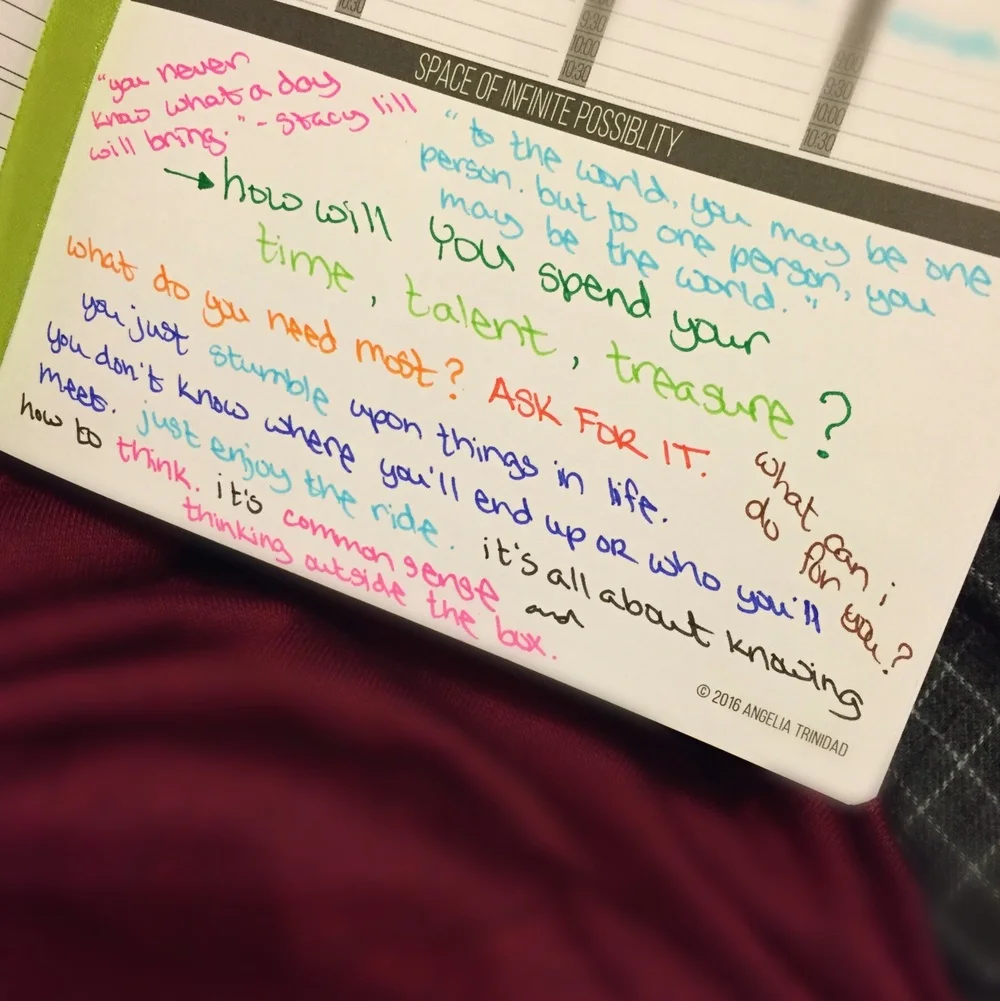 10:30
9:30
10:00
10:30
9:30
10:00
10:30
SPACE OF INFINITE POSSIBLITY
"you never
know what a day
will bring." - stacy lill
"to the world, you may be one
person. but to one person, you
may be the world."
→ how will you spend your
time, talent, treasure?
what do you need most? ASK FOR IT.
you just stumble upon things in life.
you don't know where you'll end up or who you'll
meet. just enjoy the ride. it's all about knowing
how to think. it's common sense and
thinking outside the box.
what can i
do for
you?
© 2016 ANGELIA TRINIDAD